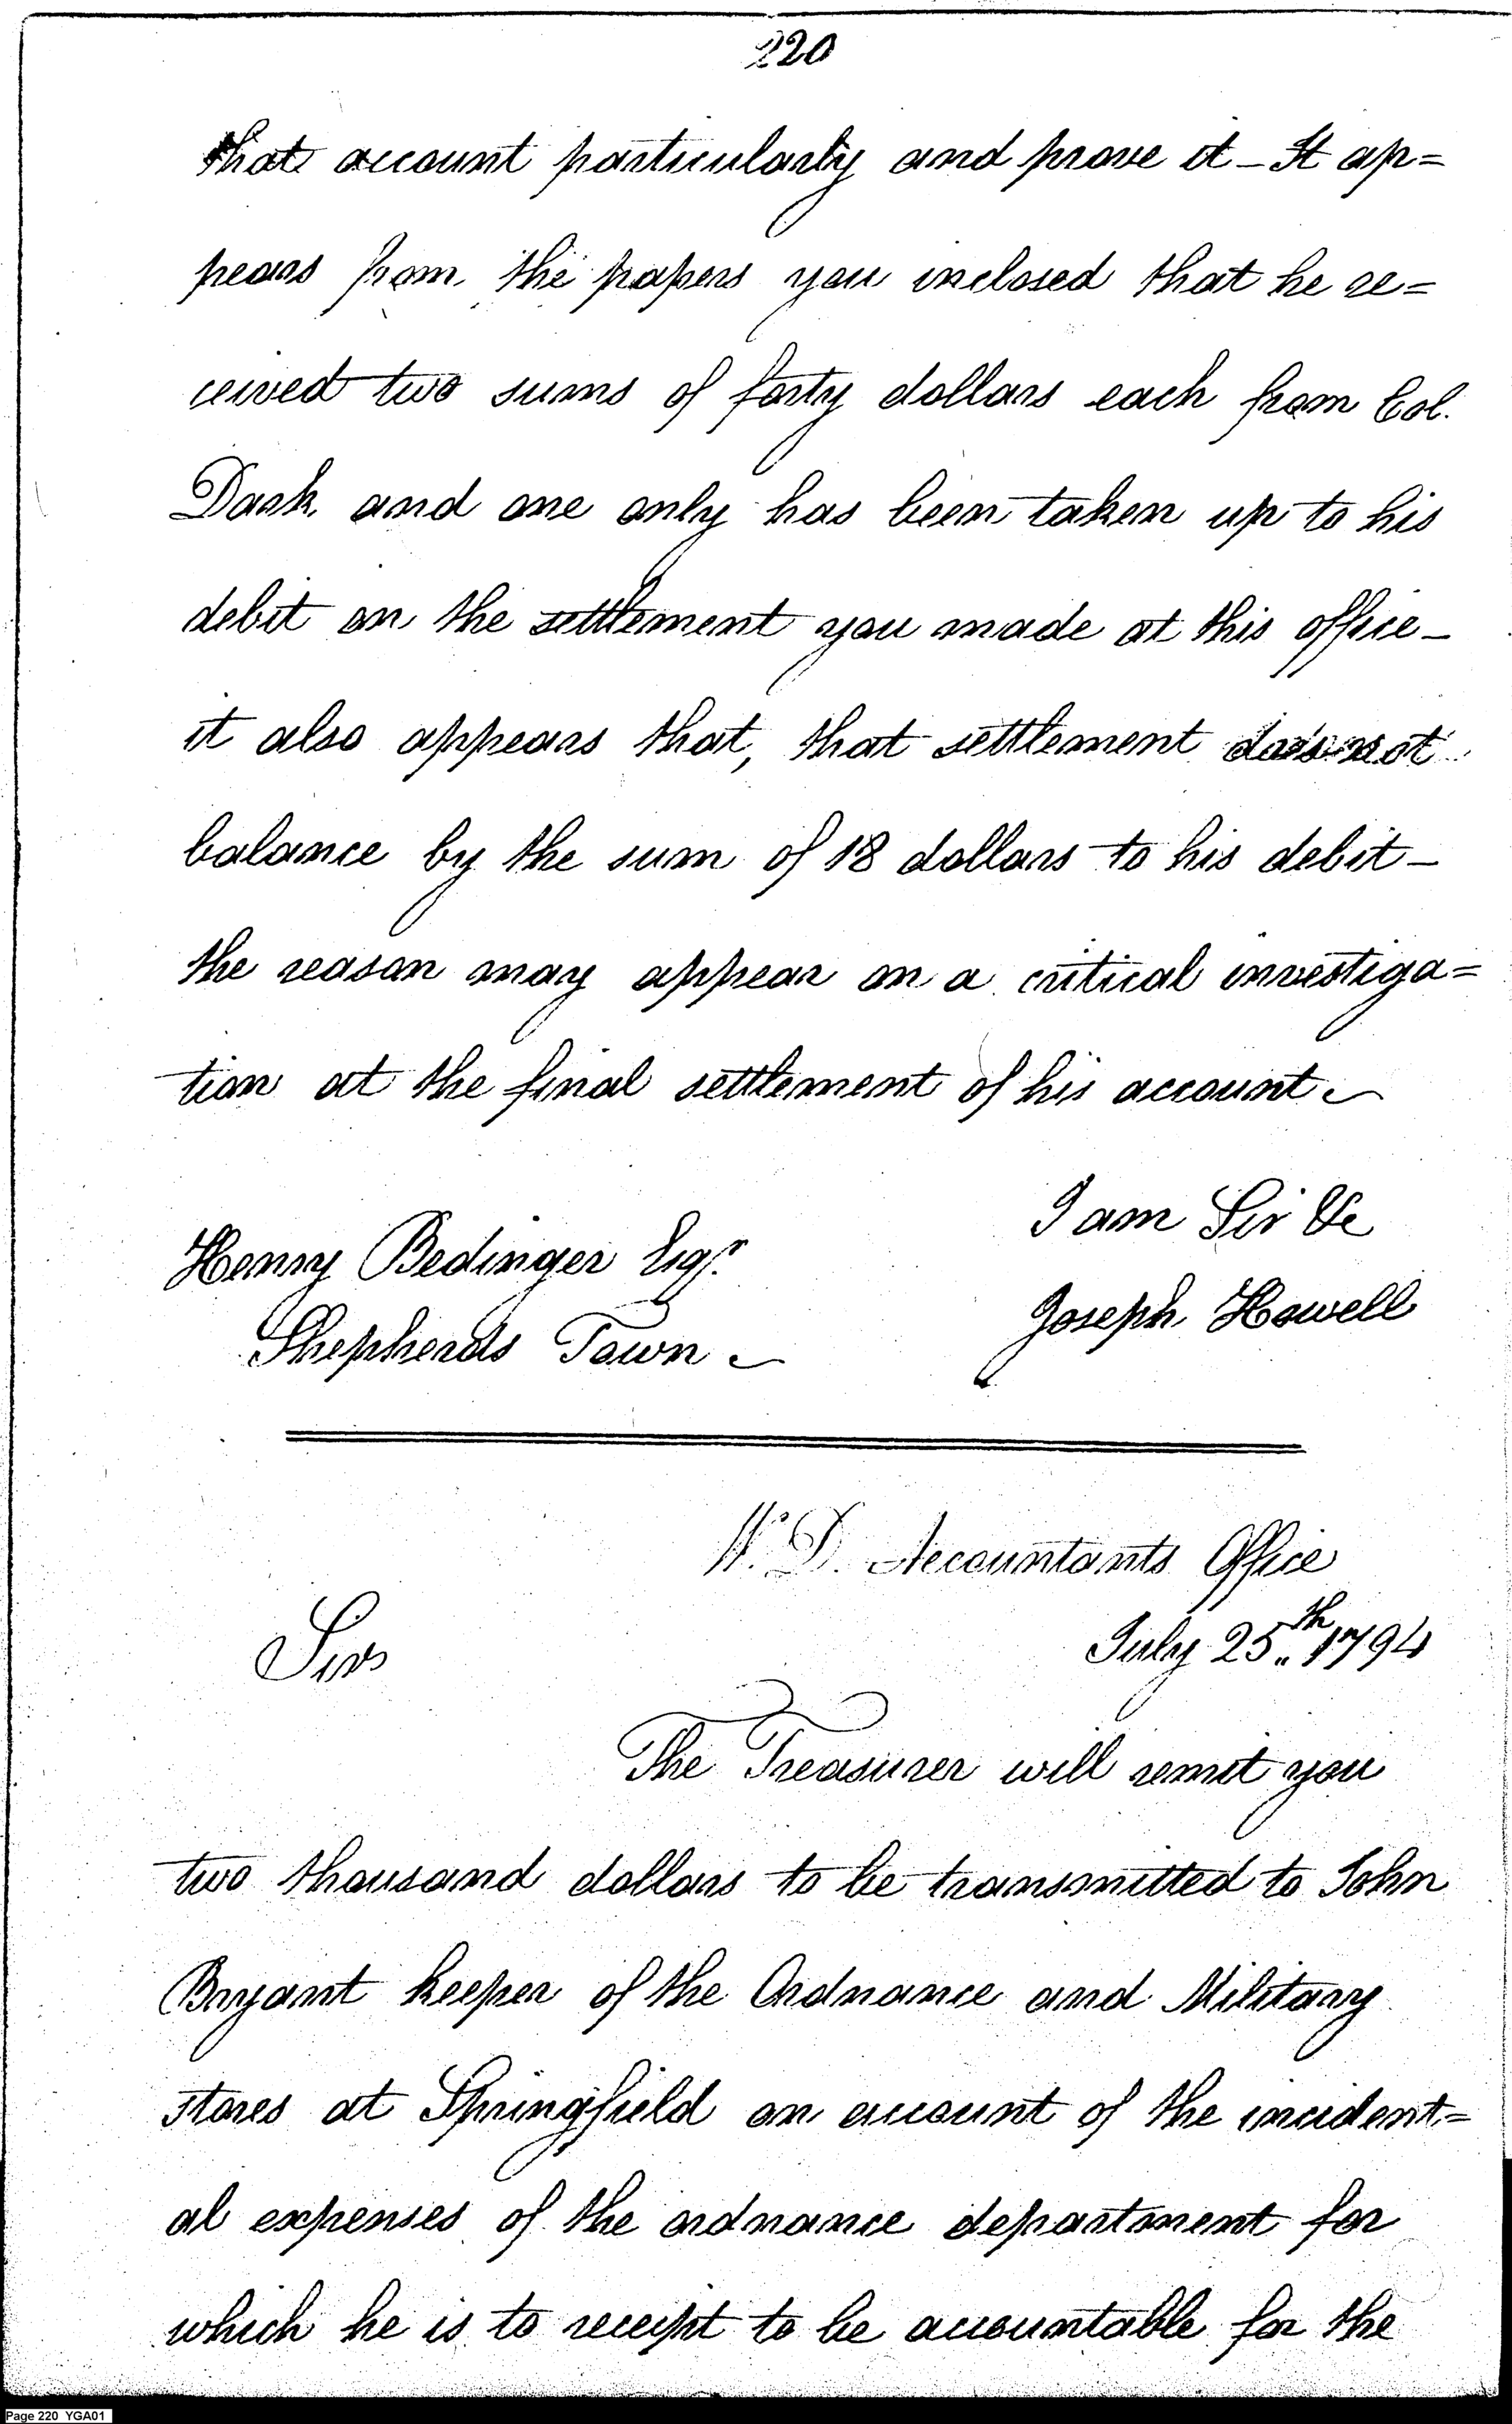 220
that account particularly and prove it – It ap=
pears from the papers you inclosed that he re=
ceived two sums of forty dollars each from Col.
Dark. and one only has been taken up to his
debit on the settlement you made at this office –
it also appears that, that settlement does not
balance by the sum of 18 dollars to his debit –
the reason may appear on a critical investiga=
tion at the final settlement of his account
I am Sir &c
Henry Bedinger Esqr.
Joseph Howell
Shepherds Town
W. D. Accountants Office
July 25th 1794
Sir
The Treasurer will remit you
two thousand dollars to be transmitted to John
Bryant keeper of the Ordnance and Military
stores at Springfield on account of the incident=
al expenses of the ordnance department for
which he is to receipt to be accountable for the
Page 220 YGA01